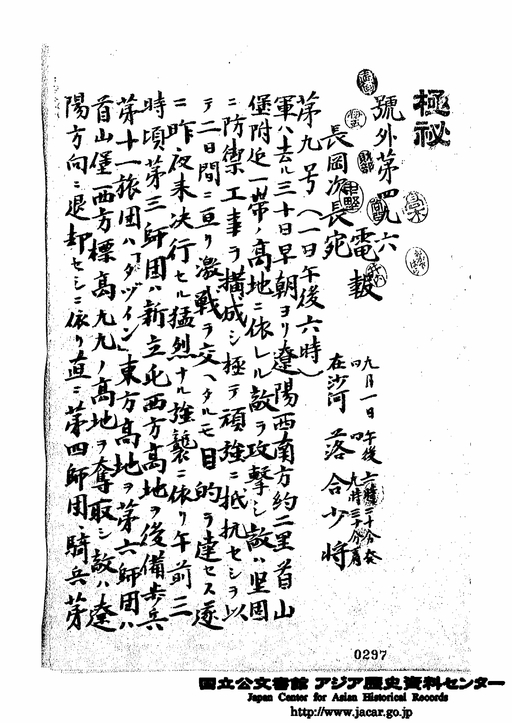 極祕
號外第四九六
電報
長岡次長宛
九月一日午後六時二十分発
同 同 九時三十分着
在沙河 落合少将
第九号(一日午後六時)
軍ハ去ル三十日早朝ヨリ遼陽西南方約二里首山
堡附近一帯ノ高地ニ依レル敵ヲ攻撃シ敵ハ堅固
ニ防禦工事ヲ構成シ極テ頑強ニ抵抗セシヲ以
テ二日間ニ亘リ激戦ヲ交ヘタルモ目的ヲ達セス遂
ニ昨夜来決行セル猛烈ナル強襲ニ依リ午前三
時頃第三師団ハ新立屯西方高地ヲ後備歩兵
第十一旅団ハ「タヅイン」東方高地ヲ第六師団ハ
首山堡西方標高九九ノ高地ヲ奪取シ敵ハ遼
陽方向ニ退却セシニ依リ直ニ第四師団、騎兵第
0297
国立公文書館 アジア歴史資料センター
Japan Center for Asian Historical Records
http://www.jacar.go.jp